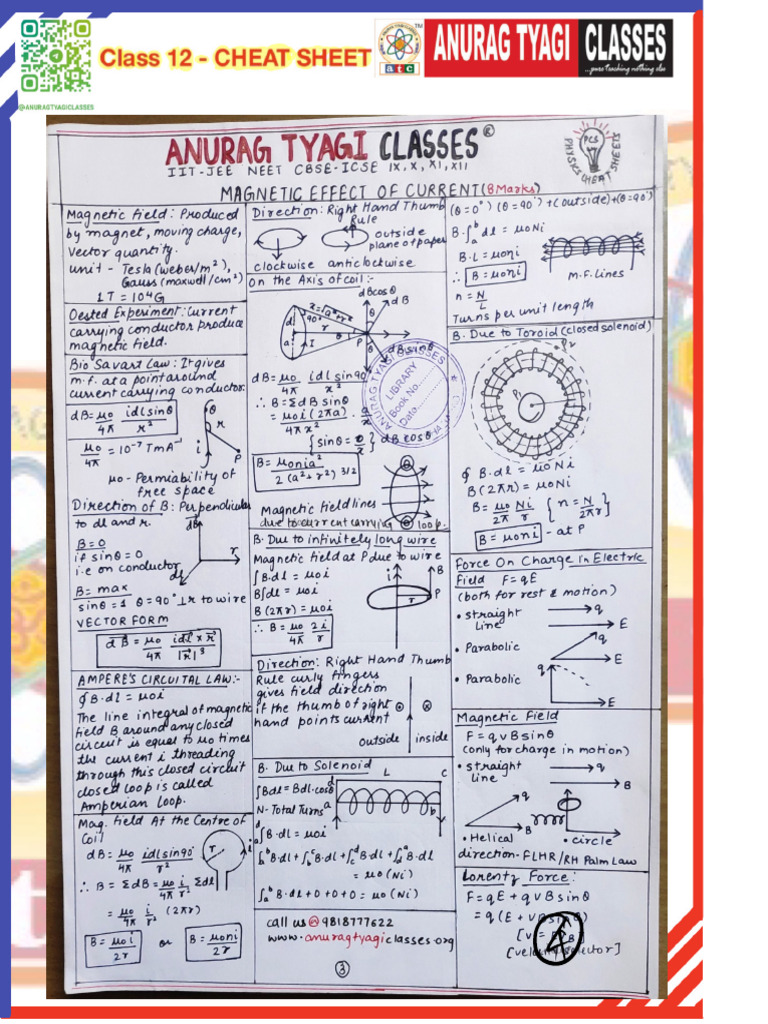 @ANURAGTYAGICLASSES
Class 12 - CHEAT SHEET
atc
TM
ANURAG TYAGI CLASSES
...pure teaching nothing else
ANURAG TYAGI CLASSES®
IIT-JEE NEET CBSE-ICSE IX, X, XI, XII
PCS
PHYSICS CHEAT SHEETS
MAGNETIC EFFECT OF CURRENT (8 Marks)
Magnetic Field: Produced
by magnet, moving charge,
Vector quantity.
unit - Tesla (weber/m²),
Gauss (maxwell/cm²)
1T = 10⁴G
Oested Experiment: Current
carrying conductor produce
magnetic field.
Bio Savart Law: It gives
m.f. at a point around
current carrying conductor.
dB = μo/4π idlsinθ/r²
μo/4π = 10⁻⁷ TmA⁻¹
θ
r
i
P
μo - Permiability of
free space
Direction of B: Perpendicular
to dl and r.
B = 0
if sinθ = 0
i.e on conductor
dB
r
dl
B = max
sinθ = 1 θ = 90° ⊥r to wire
VECTOR FORM
dB = μo/4π idl × r/|r|³
AMPERE'S CIRCUITAL LAW:-
∮B.dl = μoi
The line integral of magnetic
field B around any closed
circuit is equal to μo times
the current i threading
through this closed circuit
closed loop is called
Amperian loop.
Mag. field At the Centre of
Coil
dB = μo/4π idlsin90°/r²
r
i
∴ B = ΣdB = μo/4π i/r² Σdl
= μo/4π i/r² (2πr)
B = μoi/2r or B = μoni/2r
Direction: Right Hand Thumb
Rule
outside
plane of paper
clockwise anticlockwise
On the Axis of coil:-
dBcosθ
dB
90°
dl
a
I
r
θ
P
dBsinθ
dBcosθ
dB = μo/4π idlsin90°/x²
∴ B = ΣdBsinθ
= μoi(2πa)/4πx² . a/x
B = μonia²/2(a²+r²)3/2
Magnetic field lines
due to current carrying loop.
ANURAG TYAGI CLASSES
LIBRARY
Book No.
Date
B. Due to infinitely long wire
Magnetic field at P due to wire
∫B.dl = μoi
B∫dl = μoi
B(2πr) = μoi
∴ B = μo/4π 2i/r
i
B
r
P
Direction: Right Hand Thumb
Rule curly fingers
gives field direction
if the thumb of right
hand points current
outside inside
B. Due to Solenoid
∫Bdl = Bdl.cosθ
N - Total Turns
L
d
c
a
b
∫B.dl = μoi
∫ᵇₐB.dl + ∫ᶜ_b B.dl + ∫ᵈ_c B.dl + ∫ᵃ_d B.dl
= μo(Ni)
∫ᵇₐB.dl + 0 + 0 + 0 = μo(Ni)
call us @ 9818777622
www.anuragtyagiclasses.org
3
(θ=0°) (θ=90°) + (outside) + (θ=90°)
B.∫ᵇₐdl = μoNi
B.L = μoni
∴ B = μoni
M.F. Lines
n = N/L
Turns per unit length
B. Due to Toroid (closed solenoid)
∮B.dl = μoNi
B(2πr) = μoNi
B = μo/2π Ni/r {n = N/2πr}
B = μoni - at P
Force On Charge in Electric
Field F = qE
(both for rest & motion)
• Straight
line
q
E
• Parabolic
q
E
• Parabolic
q
E
Magnetic Field
F = qvBsinθ
(only for charge in motion)
• straight
line
q
B
q
B
• Helical
• circle
direction - FLHR/RH Palm Law
Lorentz Force:
F = qE + qvBsinθ